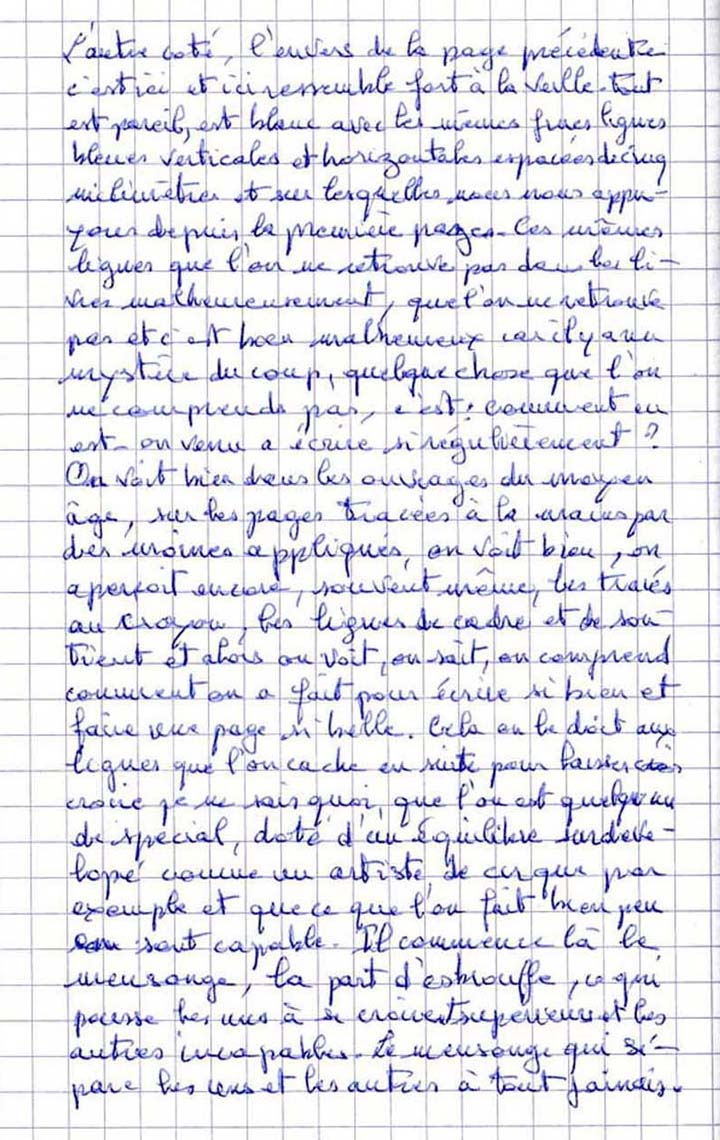 L'autre coté, l'envers de la page précédente
c'est ici et ici ressemble fort à la veille. tout
est pareil, est blanc avec les mêmes fines lignes
bleues verticales et horizontales espacées de cinq
milimètres et sur lesquelles nous nous appu-
yons depuis la première pages. Ces mêmes
lignes que l'on ne retrouve pas dans les li-
vres malheureusement, que l'on ne retrouve
pas et c'est bien malheureux car il y a un
mystère du coup, quelque chose que l'on
ne comprends pas, c'est : comment en
est-on venu a écrire si régulièrement ?
On voit bien dans les ouvrages du moyen
âge, sur les pages tracées à la mains par
des moines appliqués, on voit bien, on
aperçoit encore, souvent même, les traits
au crayon, les lignes de cadre et de sou-
tient et alors on voit, on sait, on comprend
comment on a fait pour écrire si bien et
faire une page si belle. Cela on le doit aux
lignes que l'on cache en suite pour laisser
croire je ne sais quoi, que l'on est quelqu'un
de spécial, doté d'un équilibre surdéve-
lopé comme un artiste de cirque par
exemple et que ce que l'on fait bien peu
en sont capable. Il commence là le
mensonge, la part d'esbrouffe, ce qui
pousse les uns à se croirent supérieurs et les
autres incapables. Le mensonge qui sé-
pare les uns et les autres à tout jamais.